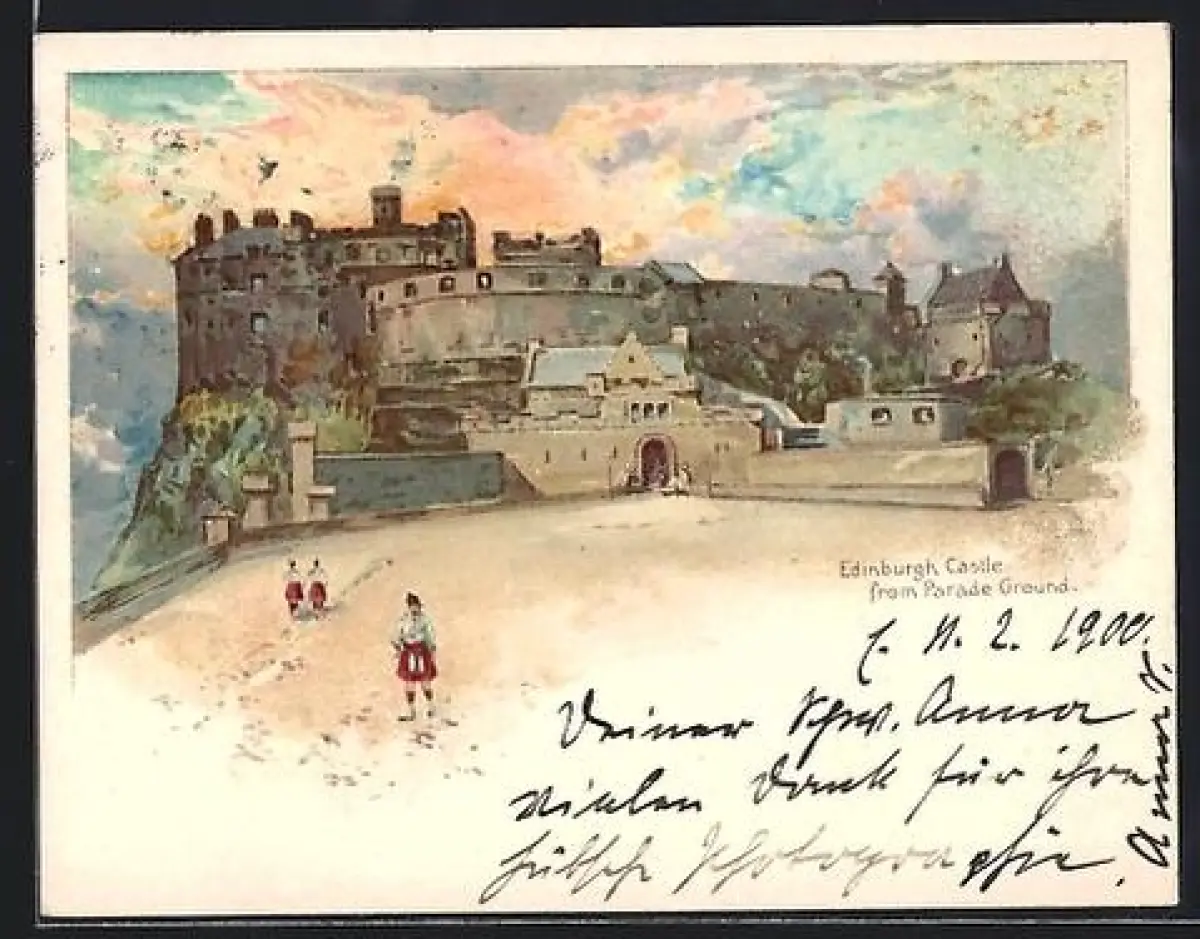 Edinburgh Castle
from Parade Ground.
E. 11. 2. 1900.
Deiner Schw. Anna
vielen Dank für ihre
hübsche Photographie.
Anna